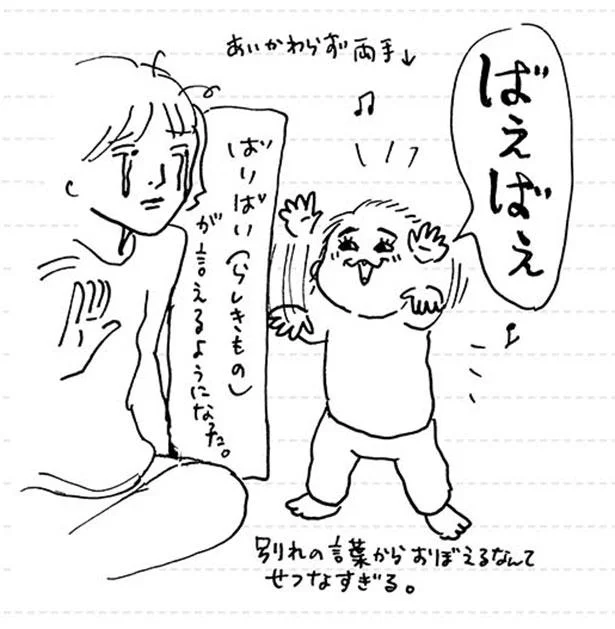 あいかわらず両手↓
ばぇばぇ
ばいばい(らしきもの)
が言えるようになった。
別れの言葉からおぼえるなんて
せつなすぎる。